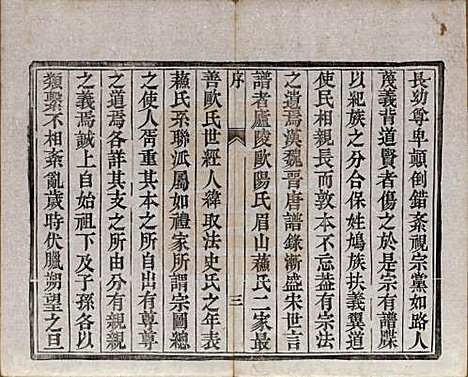 長幼尊卑顛倒錯紊視宗黨如路人
蔑義背道賢者傷之於是宗有譜牒
以紀族之分合保姓鳩族扶義翼道
使民相親長而敦本不忘蓋有宗法
之遺焉漢魏晉唐譜錄漸盛宋世言
譜者廬陵歐陽氏眉山蘓氏二家最
序
三
善歐氏世經人緯取法史氏之年表
蘓氏系聯派屬如禮家所謂宗圖總
之使人胥重其本之所自出有尊尊
之道焉各詳其支之所由分有親親
之義焉誠上自始祖下及子孫各以
類繫不相紊亂歲時伏臘朔望之旦